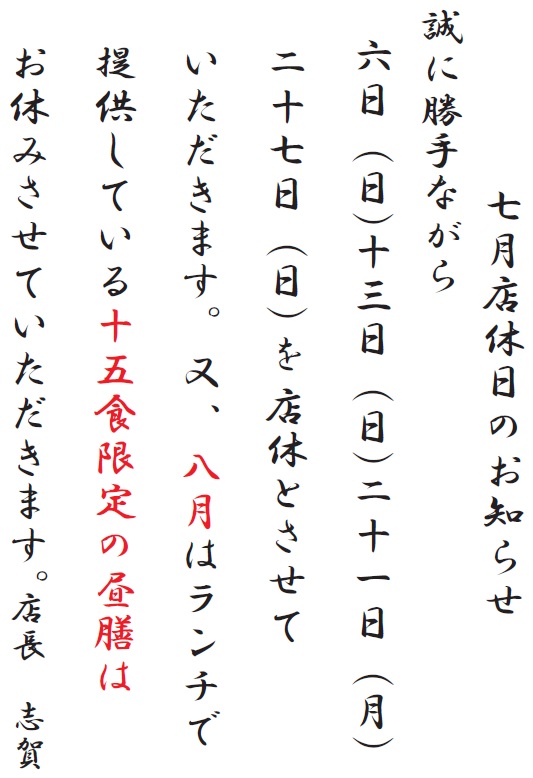 七月店休日のお知らせ
誠に勝手ながら
六日(日)十三日(日)二十一日(月)
二十七日(日)を店休とさせて
いただきます。又、八月はランチで
提供している十五食限定の昼膳は
お休みさせていただきます。店長 志賀